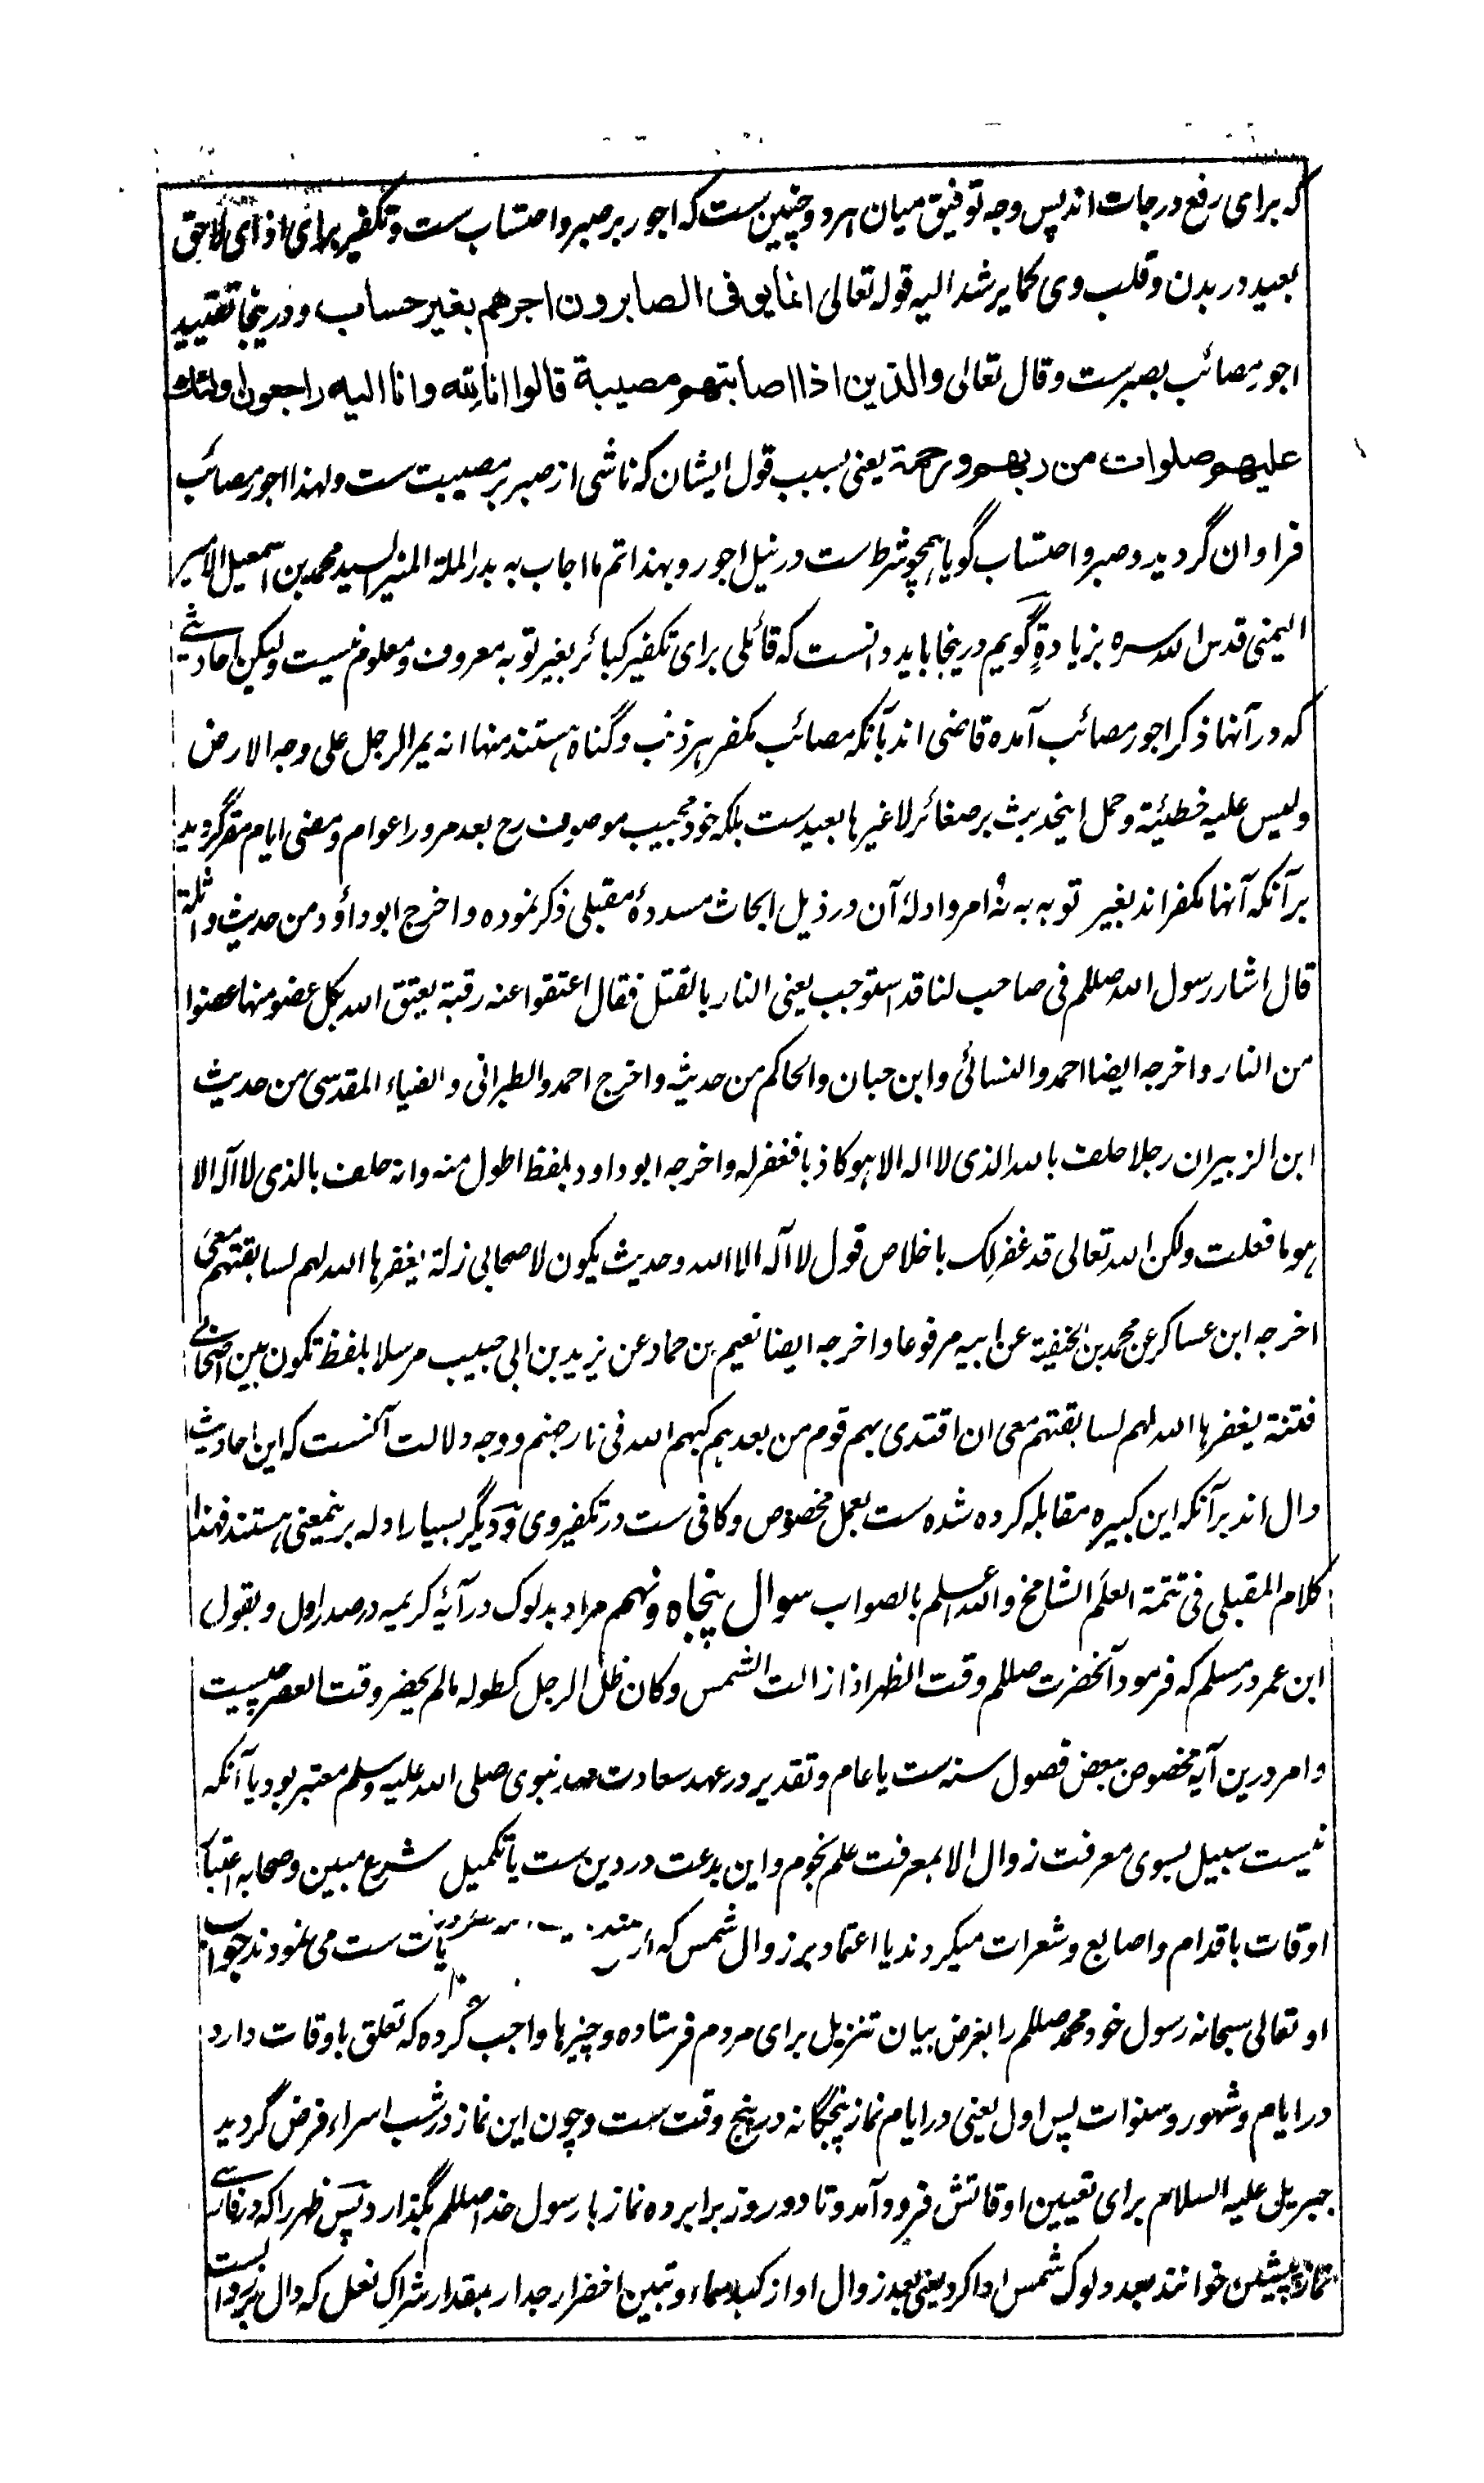 که برای رفع درجات اند پس وجه توفیق میان هر دو چنین ست که اجور بر صبر و احتساب ست و تکفیر برای اذای لاحق
بعید در بدن و قلب وی کما یرشد الیه قوله تعالی انما یوفی الصابرون اجرهم بغیر حساب و درینجا تقیید
اجور مصائب بصبرست و قال تعالی والذین اذا اصابتهم مصیبة قالوا انا لله وانا الیه راجعون اولئک
علیهم صلوات من ربهم ورحمة یعنی بسبب قول ایشان که ناشی از صبر بر مصیبت ست و لهذا اجور مصائب
فراوان گردید و صبر و احتساب گویا همچو شرط ست در نیل اجور و بهذا تم ما اجاب به بدر الملة المنیر السید محمد بن اسمعیل الامیر
الیمنی قدس الله سره بزیادة گویم درینجا باید دانست که قائلی برای تکفیر کبائر بغیر توبه معروف و معلوم نیست ولیکن احادیثی
که در آنها ذکر اجور مصائب آمده قاضی اند بآنکه مصائب مکفر هر ذنب و گناه هستند منها انه یمر الرجل علی وجه الارض
ولیس علیه خطیئة و حمل اینحدیث بر صغائر لا غیرها بعیدست بلکه خود مجیب موصوف رح بعد مرور اعوام و مضی ایام مقر گردید
بر آنکه آنها مکفر اند بغیر توبه به نه امر و ادلهٔ آن در ذیل ابحاث مسددهٔ مقبلی ذکر نموده و اخرج ابو داؤد من حدیث واثلة
قال اشار رسول الله صللم فی صاحب لنا قد استوجب یعنی النار بالقتل فقال اعتقوا عنه رقبة یعتق الله بکل عضو منها عضوا
من النار و اخرجه ایضا احمد والنسائی وابن حبان والحاکم من حدیثه و اخرج احمد والطبرانی والضیاء المقدسی من حدیث
ابن الزبیر ان رجلا حلف بالله الذی لا اله الا هو کاذبا فغفر له و اخرجه ابو داود بلفظ اطول منه وانه حلف بالذی لا آله الا
هو ما فعلت ولکن الله تعالی قد غفر لک باخلاص قول لا آله الا الله و حدیث یکون لاصحابی زلة یغفرها الله لهم لسابقتهم معی
اخرجه ابن عساکر عن محمد بن الحنفیة عن ابیه مرفوعا و اخرجه ایضا نعیم بن حماد عن یزید بن ابی حبیب مرسلا بلفظ تکون بین اصحابی
فتنة یغفرها الله لهم لسابقتهم معی ان اقتدی بهم قوم من بعدهم کبهم الله فی نار جهنم و وجه دلالت آنست که این احادیث
دال اند بر آنکه این کبیره مقابله کرده شده ست بعمل مخصوص و کافی ست در تکفیر وی و دیگر بسیار ادله برینمعنی هستند فهذا
کلام المقبلی فی تتمة العلم الشامخ والله اعلم بالصواب سوال پنجاه و نهم مراد بدلوک در آیهٔ کریمه در صدر اول و بقول
ابن عمر در مسلم که فرمود آنحضرت صللم وقت الظهر اذا زالت الشمس وکان ظل الرجل کطوله ما لم یحضر وقت العصر چیست
و امر درین آیه مخصوص ببعض فصول سنه ست یا عام و تقدیر در عهد سعادت مهد نبوی صلی الله علیه وسلم معتبر بود یا آنکه
نیست سبیل بسوی معرفت زوال الا بمعرفت علم نجوم و این بدعت در دین ست یا تکمیل شرع مبین و صحابه اعتبار
اوقات باقدام و اصابع و شعرات میکردند یا اعتماد بر زوال شمس که از ست می نمودند جواب
او تعالی سبحانه رسول خود محمد صللم را بغرض بیان تنزیل برای مردم فرستاده و چیزها واجب کرده که تعلق باوقات دارد
در ایام و شهور و سنوات پس اول یعنی در ایام نماز پنجگانه در پنج وقت ست و چون این نماز در شب اسراء فرض گردید
جبریل علیه السلام برای تعیین اوقاتش فرود آمد و تا دو روز برابر ده نماز با رسول خدا صللم بگذارد پس ظهر را که در فارسی
نماز پیشین خوانند بعد دلوک شمس ادا کرد یعنی بعد زوال او از کبد سماء و تبین اخضرار جدار بمقدار شراک نعل که دال بر زوال ست